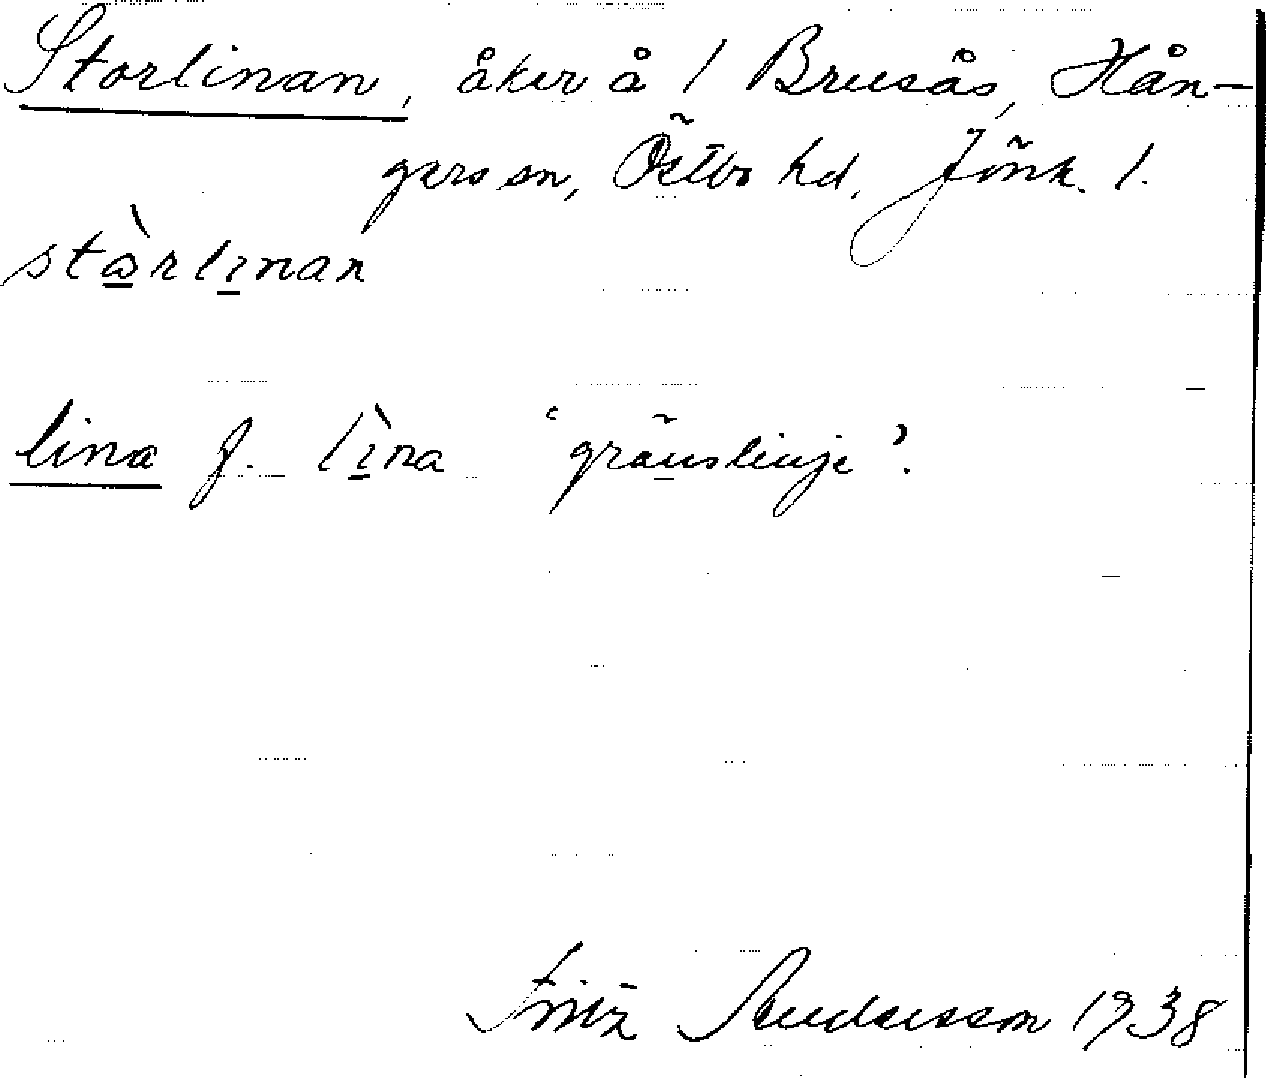 Storlinan, åker å 1 Brusås, Hån-
gers sn, Östbo hd, Jönk. l.
stòrlinan
lina f. lìna 'gränslinje'.
Fritz Andersson 1938